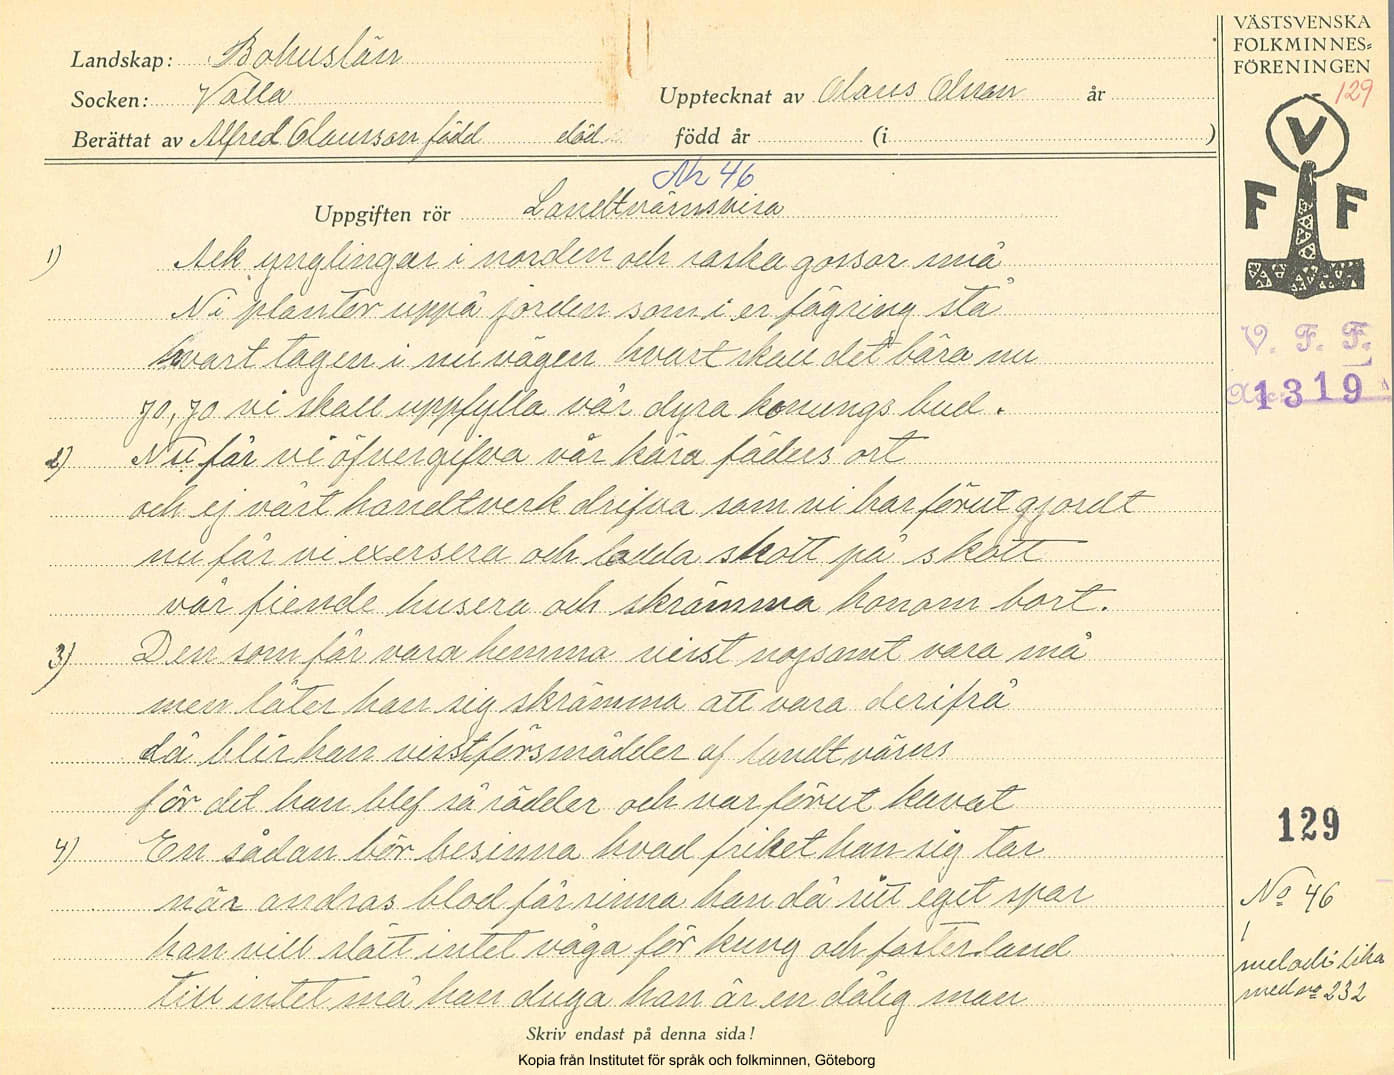 VÄSTSVENSKA
FOLKMINNES=
FÖRENINGEN
129
Landskap: Bohuslän
Socken: Valla
Upptecknat av Olaus Olsson år
Berättat av Alfred Olausson född död född år (i )
Nr 46
Uppgiften rör Landtvärnsvisa
1) Ack ynglingar i norden och raska gossar små
Ni plantor uppå jorden som i er fägring stå
hvart tagen i nu vägen hvart skall det bära nu
jo, jo vi skall uppfylla vår dyra konungs bud.
2) Nu får vi öfvergifva vår kära fäders ort
och ej vårt handtverk drifva som vi har förut gjordt
nu får vi exersera och ladda skott på skott
vår fiende husera och skrämma honom bort.
3) Den som får vara hemma visst nojsamt vara må
men låter han sig skrämma att vara derifrå
då blir han visst försmädder af landtväsens
för det han blef så rädder och var förut kavat
4) En sådan bör besinna hvad frihet han sig tar
när andras blod får rinna han då sitt eget spar
han vill slätt intet våga för kung och fosterland
till intet må han duga han är en dålig man
V
F F
V. F. F.
Acc: 1319
129
No 46
1
melodi lika
med no 232
Skriv endast på denna sida!
Kopia från Institutet för språk och folkminnen, Göteborg